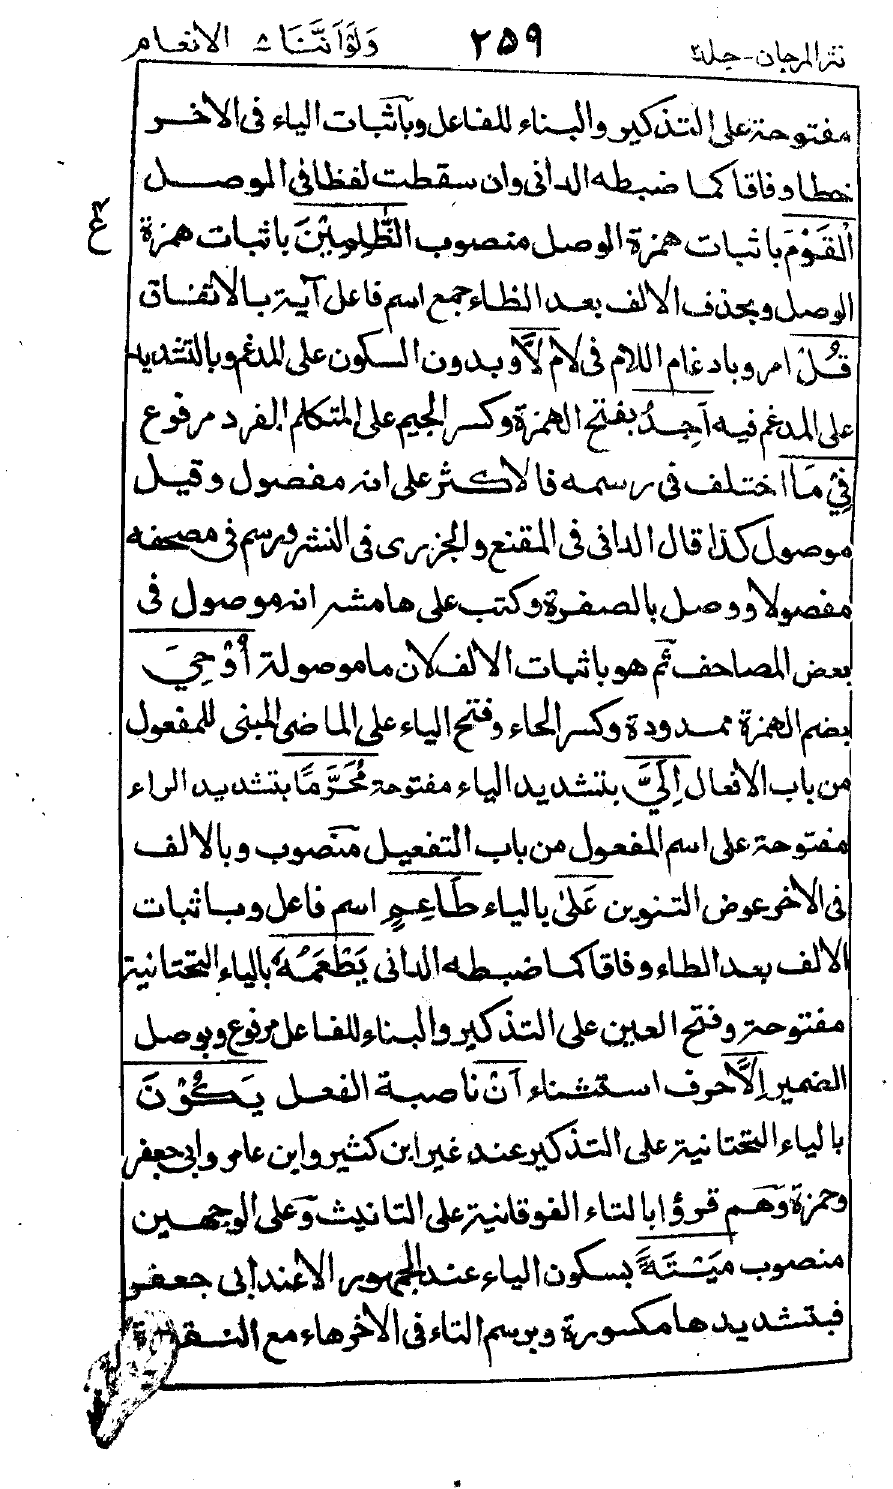 نثر المرجان - جلد٢ ٢٥٩ وَلَوْ أَنَّنَا ٨ الانعام
مفتوحة على التذكير والبناء للفاعل وباثبات الياء فى الآخر
خطا وفاقا كما ضبطه الدانى وان سقطت لفظا فى الوصل
الْقَوْمَ باثبات همزة الوصل منصوب الظّٰلِمِيْنَ باثبات همزة
الوصل وبحذف الالف بعد الظاء جمع اسم فاعل آية بالاتفاق
ع
قُلْ امر وبادغام اللام فى لام لَّا وبدون السكون على المدغم وبالتشديد
على المدغم فيه اَجِدُ بفتح الهمزة وكسر الجيم على المتكلم المفرد مرفوع
فِىْ مَا اختلف فى رسمه فالاكثر على انه مفصول وقيل
موصول كذا قال الدانى فى المقنع والجزرى فى النشر ورسم فى مصحفه
مفصولا ووصل بالصفرة وكتب على هامشه انه موصول فى
بعض المصاحف ثم هو باثبات الالف لان ما موصولة اُوْحِىَ
بضم الهمزة ممدودة وكسر الحاء وفتح الياء على الماضى المبنى للمفعول
من باب الافعال اِلَىَّ بتشديد الياء مفتوحة مُحَرَّمًا بتشديد الراء
مفتوحة على اسم المفعول من باب التفعيل منصوب وبالالف
فى الآخر عوض التنوين عَلٰى بالياء طَاعِمٍ اسم فاعل وباثبات
الالف بعد الطاء وفاقا كما ضبطه الدانى يَطْعَمُهٗ بالياء التحتانية
مفتوحة وفتح العين على التذكير والبناء للفاعل مرفوع وبوصل
الضمير اِلَّا حرف استثناء اَنْ ناصبة الفعل يَكُوْنَ
بالياء التحتانية على التذكير عند غير ابن كثير وابن عامر وابى جعفر
وحمزة وَهم قرؤا بالتاء الفوقانية على التانيث وَعلى الوجهين
منصوب مَيْتَةً بسكون الياء عند الجمهور الا عند ابى جعفر
فبتشديدها مكسورة وبرسم التاء فى الآخر هاء مع النقطة